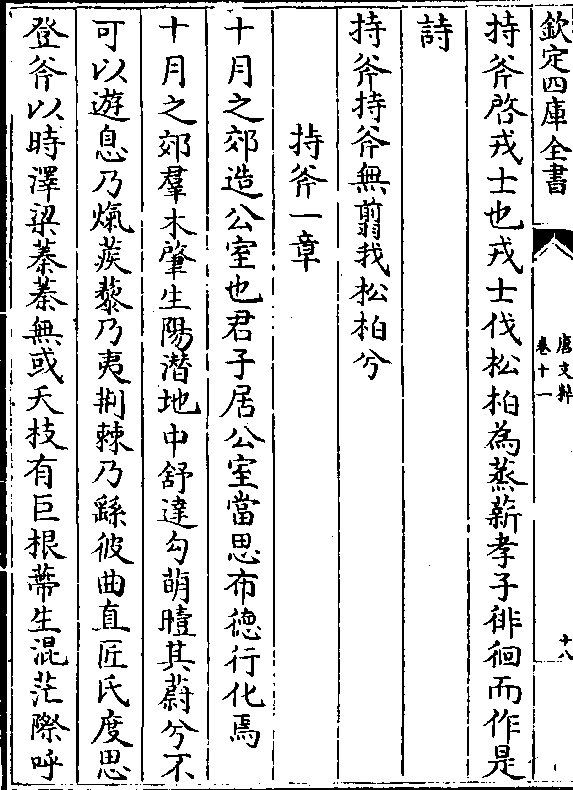 欽定四庫全書
唐文粹
卷十一
十八
持斧啓戎士也戎士伐松柏為蒸薪孝子徘徊而作是
詩
持斧持斧無翦我松柏兮
持斧一章
十月之郊造公室也君子居公室當思布德行化焉
十月之郊羣木肇生陽潛地中舒達勾萌曀其蔚兮不
可以遊息乃爇蒺藜乃夷荆棘乃繇彼曲直匠氏度思
登斧以時澤梁蓁蓁無或夭枝有巨根蔕生混茫際呼